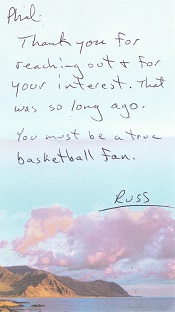 Phil:
Thank you for
reaching out & for
your interest. That
was so long ago.
You must be a true
basketball fan.
Russ